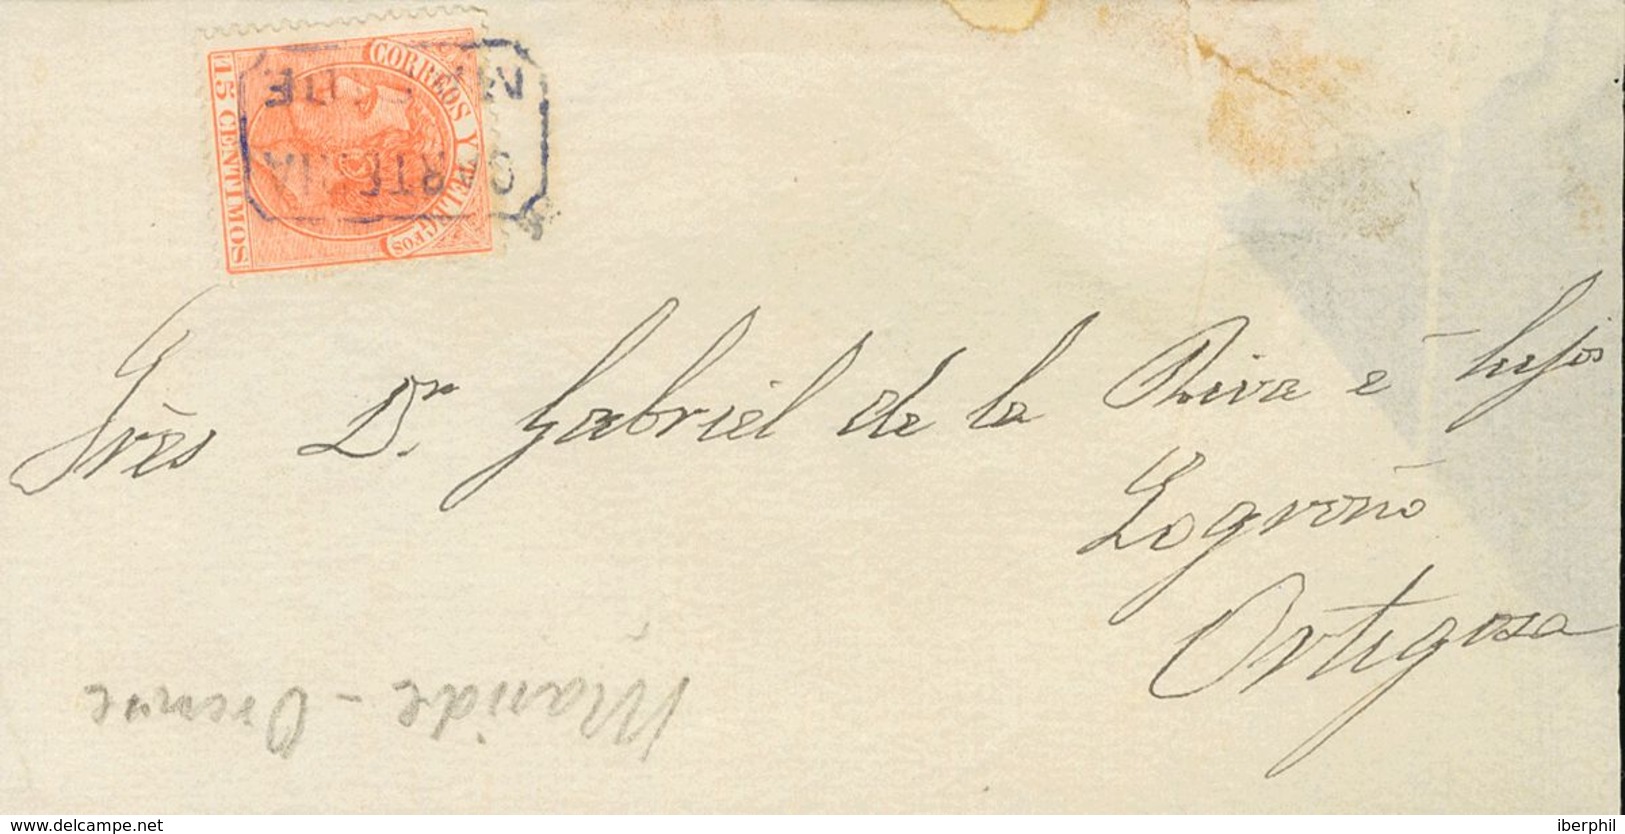 CORREOS Y TELEGFOS
15 CENTIMOS
CARTERIA
Srès Dn Gabriel de la Riva é hijos
Logroño
Ortigosa
Maside - Orense
www.delcampe.net
iberphil